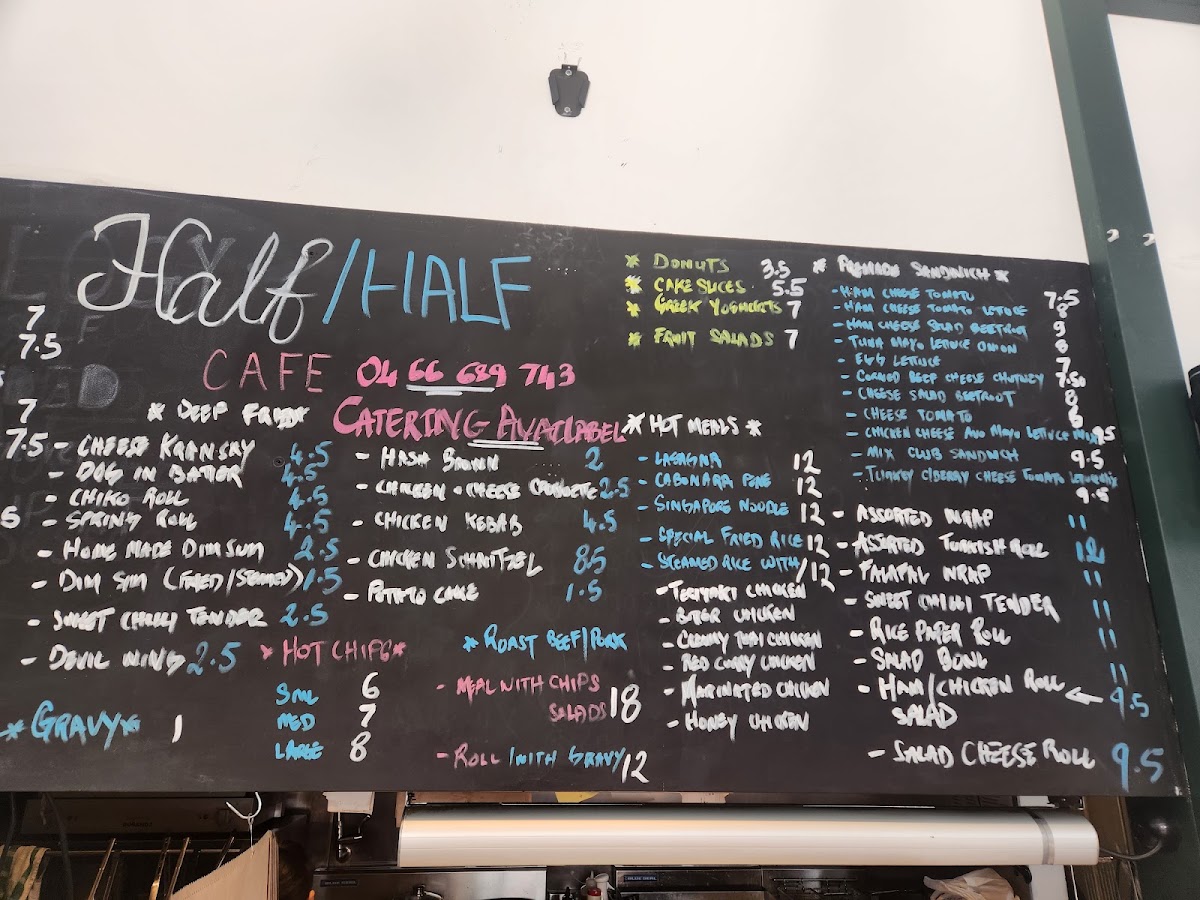 Half/HALF
CAFE 04 66 689 743
CATERING AVAILABEL
7
7.5
7
7.5
5
* DEEP FRIED *
- CHEESE KRANSKY 4.5
- DOG IN BATTER 4.5
- CHIKO ROLL 4.5
- SPRING ROLL 4.5
- HOME MADE DIM SUM 2.5
- DIM SIM (FRIED/STEAMED) 1.5
- SWEET CHILLI TENDER 2.5
- DEVIL WING 2.5
* GRAVY * 1
- HASH BROWN 2
- CHICKEN & CHEESE 2.5
- CHICKEN KEBAB 4.5
- CHICKEN SCHNITZEL 8.5
- POTATO CAKE 1.5
* HOT CHIPS *
SML 6
MED 7
LARGE 8
* ROAST BEEF/PORK
- MEAL WITH CHIPS
SALADS 18
- ROLL /WITH GRAVY 12
* DONUTS 3.5
* CAKE SLICES 5.5
* GREEK YOGHURTS 7
* FRUIT SALADS 7
* HOT MEALS *
- LASAGNA 12
- CABONARA PENE 12
- SINGAPORE NOODLE 12
- SPECIAL FRIED RICE 12
- STEAMED RICE WITH /12
- TERIYAKI CHICKEN
- BUTER CHICKEN
- CREAMY THAI CHICKEN
- RED CURRY CHICKEN
- MARINATED CHICKEN
- HONEY CHICKEN
* PREMADE SANDWICH *
- HAM CHEESE TOMATO 7.5
- HAM CHEESE TOMATO LETUCE 8
- HAM CHEESE SALAD BEETROOT 9
- TUNA MAYO LETTUCE ONION 8
- EGG LETTUCE 7
- CORNED BEEF CHEESE CHUTNEY 7.50
- CHEESE SALAD BEETROOT 8
- CHEESE TOMATO 6
- CHICKEN CHEESE AVO MAYO LETTUCE MIX 9.5
- MIX CLUB SANDWICH 9.5
- TURKEY C/BERRY CHEESE TOMATO
9.5
- ASSORTED WRAP 11
- ASSORTED TURKISH ROLL 12
- FALAFAL WRAP 11
- SWEET CHILLI TENDER 11
- RICE PAPER ROLL 11
- SALAD BOWL 11
- HAM/CHICKEN ROLL ← 9.5
SALAD
- SALAD CHEESE ROLL 9.5